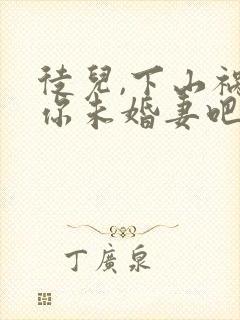 徒兒,下山禍
你未婚妻吧
丁廣泉